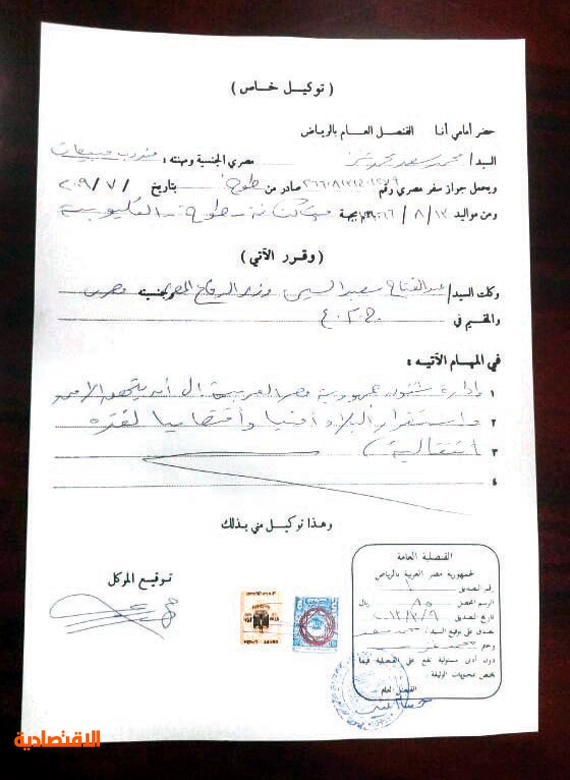 ( توكيل خاص )
حضر أمامي أنا القنصل العام بالرياض
السيد / محمد سعد محمد مصري الجنسية ومهنته : مندوب مبيعات
ويحمل جواز سفر مصري رقم صادر من طوخ بتاريخ / ٧ / ٢٠٠٩
ومن مواليد ١٣ / ٨ / بجهة - طوخ - القليوبية
( وقرر الآتي )
وكلت السيد / عبدالفتاح سعيد السيسي وزير الدفاع المصري وبجنسيته مصرى
والمقيم في ج.م.ع
في المهام الآتيه :
١ إدارة شئون جمهورية مصر العربية إلى أن يتم الأمن
٢ واستقرار البلاد أمنيا واقتصاديا لفتره
٣ انتقالية
٤
وهذا توكيل مني بذلك
توقيع الموكل
القنصلية العامة
لجمهورية مصر العربية بالرياض
رقم التصديق
الرسم المحصل ٨٥ ريال
تاريخ التصديق ٢٠١٣/٣/٩
نصدق على توقيع السيد / محمد سعد
وختم
دون أدنى مسئولية تقع على القنصلية فيما
يختص بمحتويات الوثيقة
القنصل العام
الاقتصادية